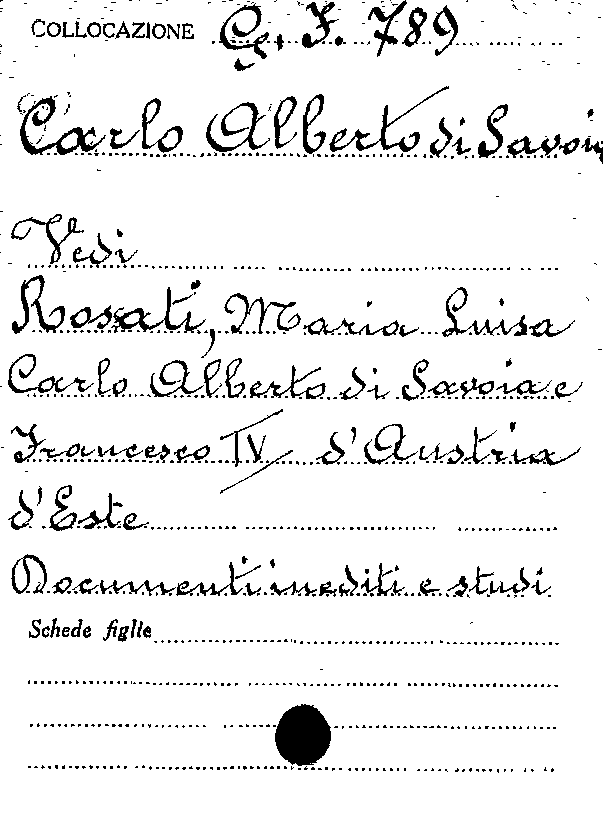 COLLOCAZIONE G. F. 789
Carlo Alberto di Savoia
Vedi
Rosati, Maria Luisa
Carlo Alberto di Savoia e
Francesco IV d'Austria
d'Este
Documenti inediti e studi
Schede figlie